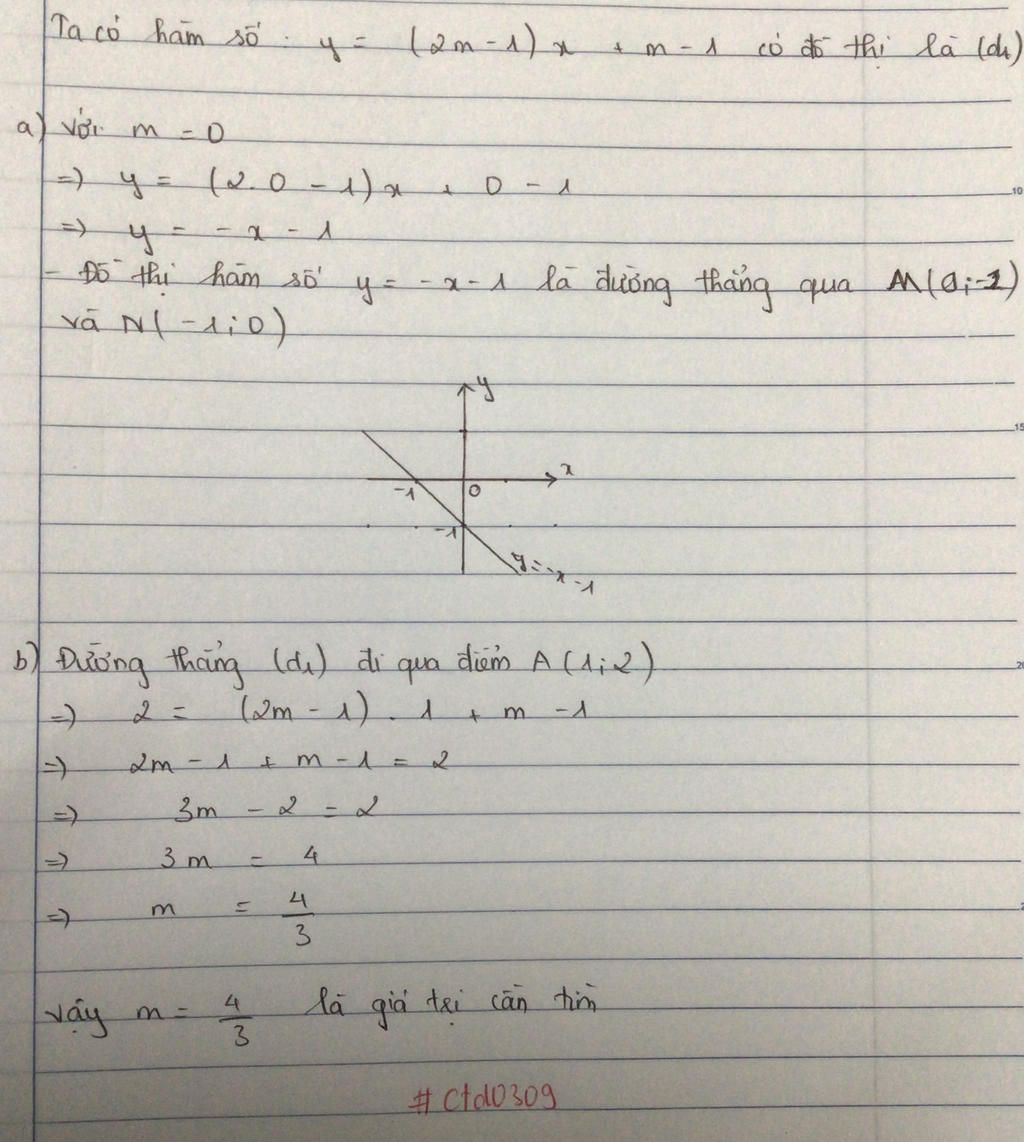 Ta có hàm số: y = (2m-1)x + m-1 có đồ thị là (d₁)
a) Với m = 0
=) y = (2.0 - 1)x + 0 - 1
=) y = -x - 1
- Đồ thị hàm số y = -x-1 là đường thẳng qua M(0;-1)
và N(-1;0)
y
x
-1 0
-1
y=-x-1
b) Đường thẳng (d₁) đi qua điểm A(1;2)
=) 2 = (2m-1).1 + m -1
=) 2m-1 + m-1 = 2
=) 3m - 2 = 2
=) 3m = 4
=) m = 4/3
Vậy m = 4/3 là giá trị cần tìm
#Ctd0309
10
15